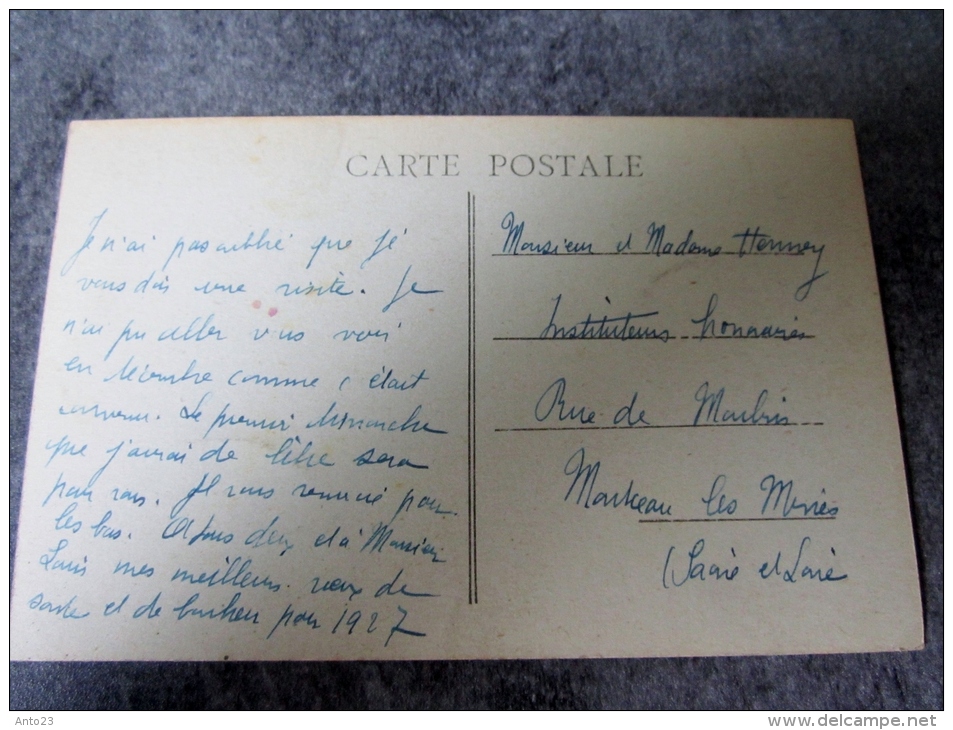 CARTE POSTALE
Je n'ai pas oublié que je
vous dois une visite. Je
n'ai pu aller vous voir
en décembre comme c'était
convenu. Le premier dimanche
que j'aurai de libre sera
pour vous. Je vous remercie pour
les bas. A tous deux et à Monsieur
Louis mes meilleurs vœux de
santé et de bonheur pour 1927
Monsieur et Madame
Instituteurs honoraires
Rue de Moulins
Montceau les Mines
(Saône et Loire
Anto23
www.delcampe.net